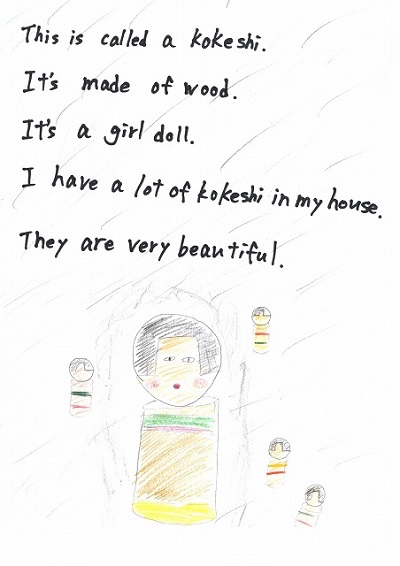 This is called a kokeshi.
It's made of wood.
It's a girl doll.
I have a lot of kokeshi in my house.
They are very beautiful.